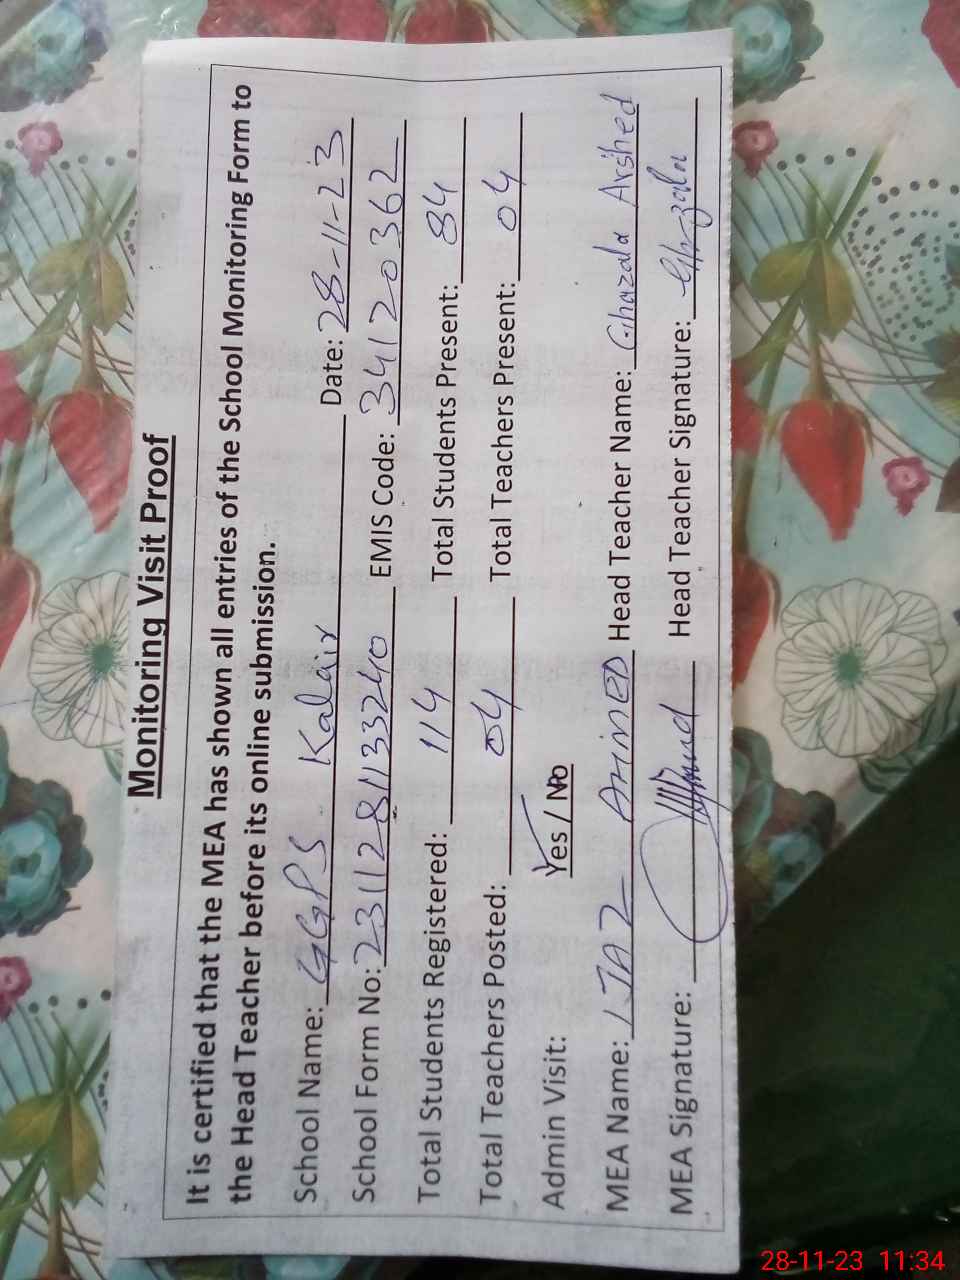 Monitoring Visit Proof
It is certified that the MEA has shown all entries of the School Monitoring Form to
the Head Teacher before its online submission.
School Name: GGPS Kalair Date: 28-11-23
School Form No: 2311281133240 EMIS Code: 34120362
Total Students Registered: 114 Total Students Present: 84
Total Teachers Posted: 04 Total Teachers Present: 04
Admin Visit: Yes / No
MEA Name: IJAZ AHMED Head Teacher Name: Ghazala Arshed
MEA Signature: Head Teacher Signature: Ghazala
28-11-23 11:34